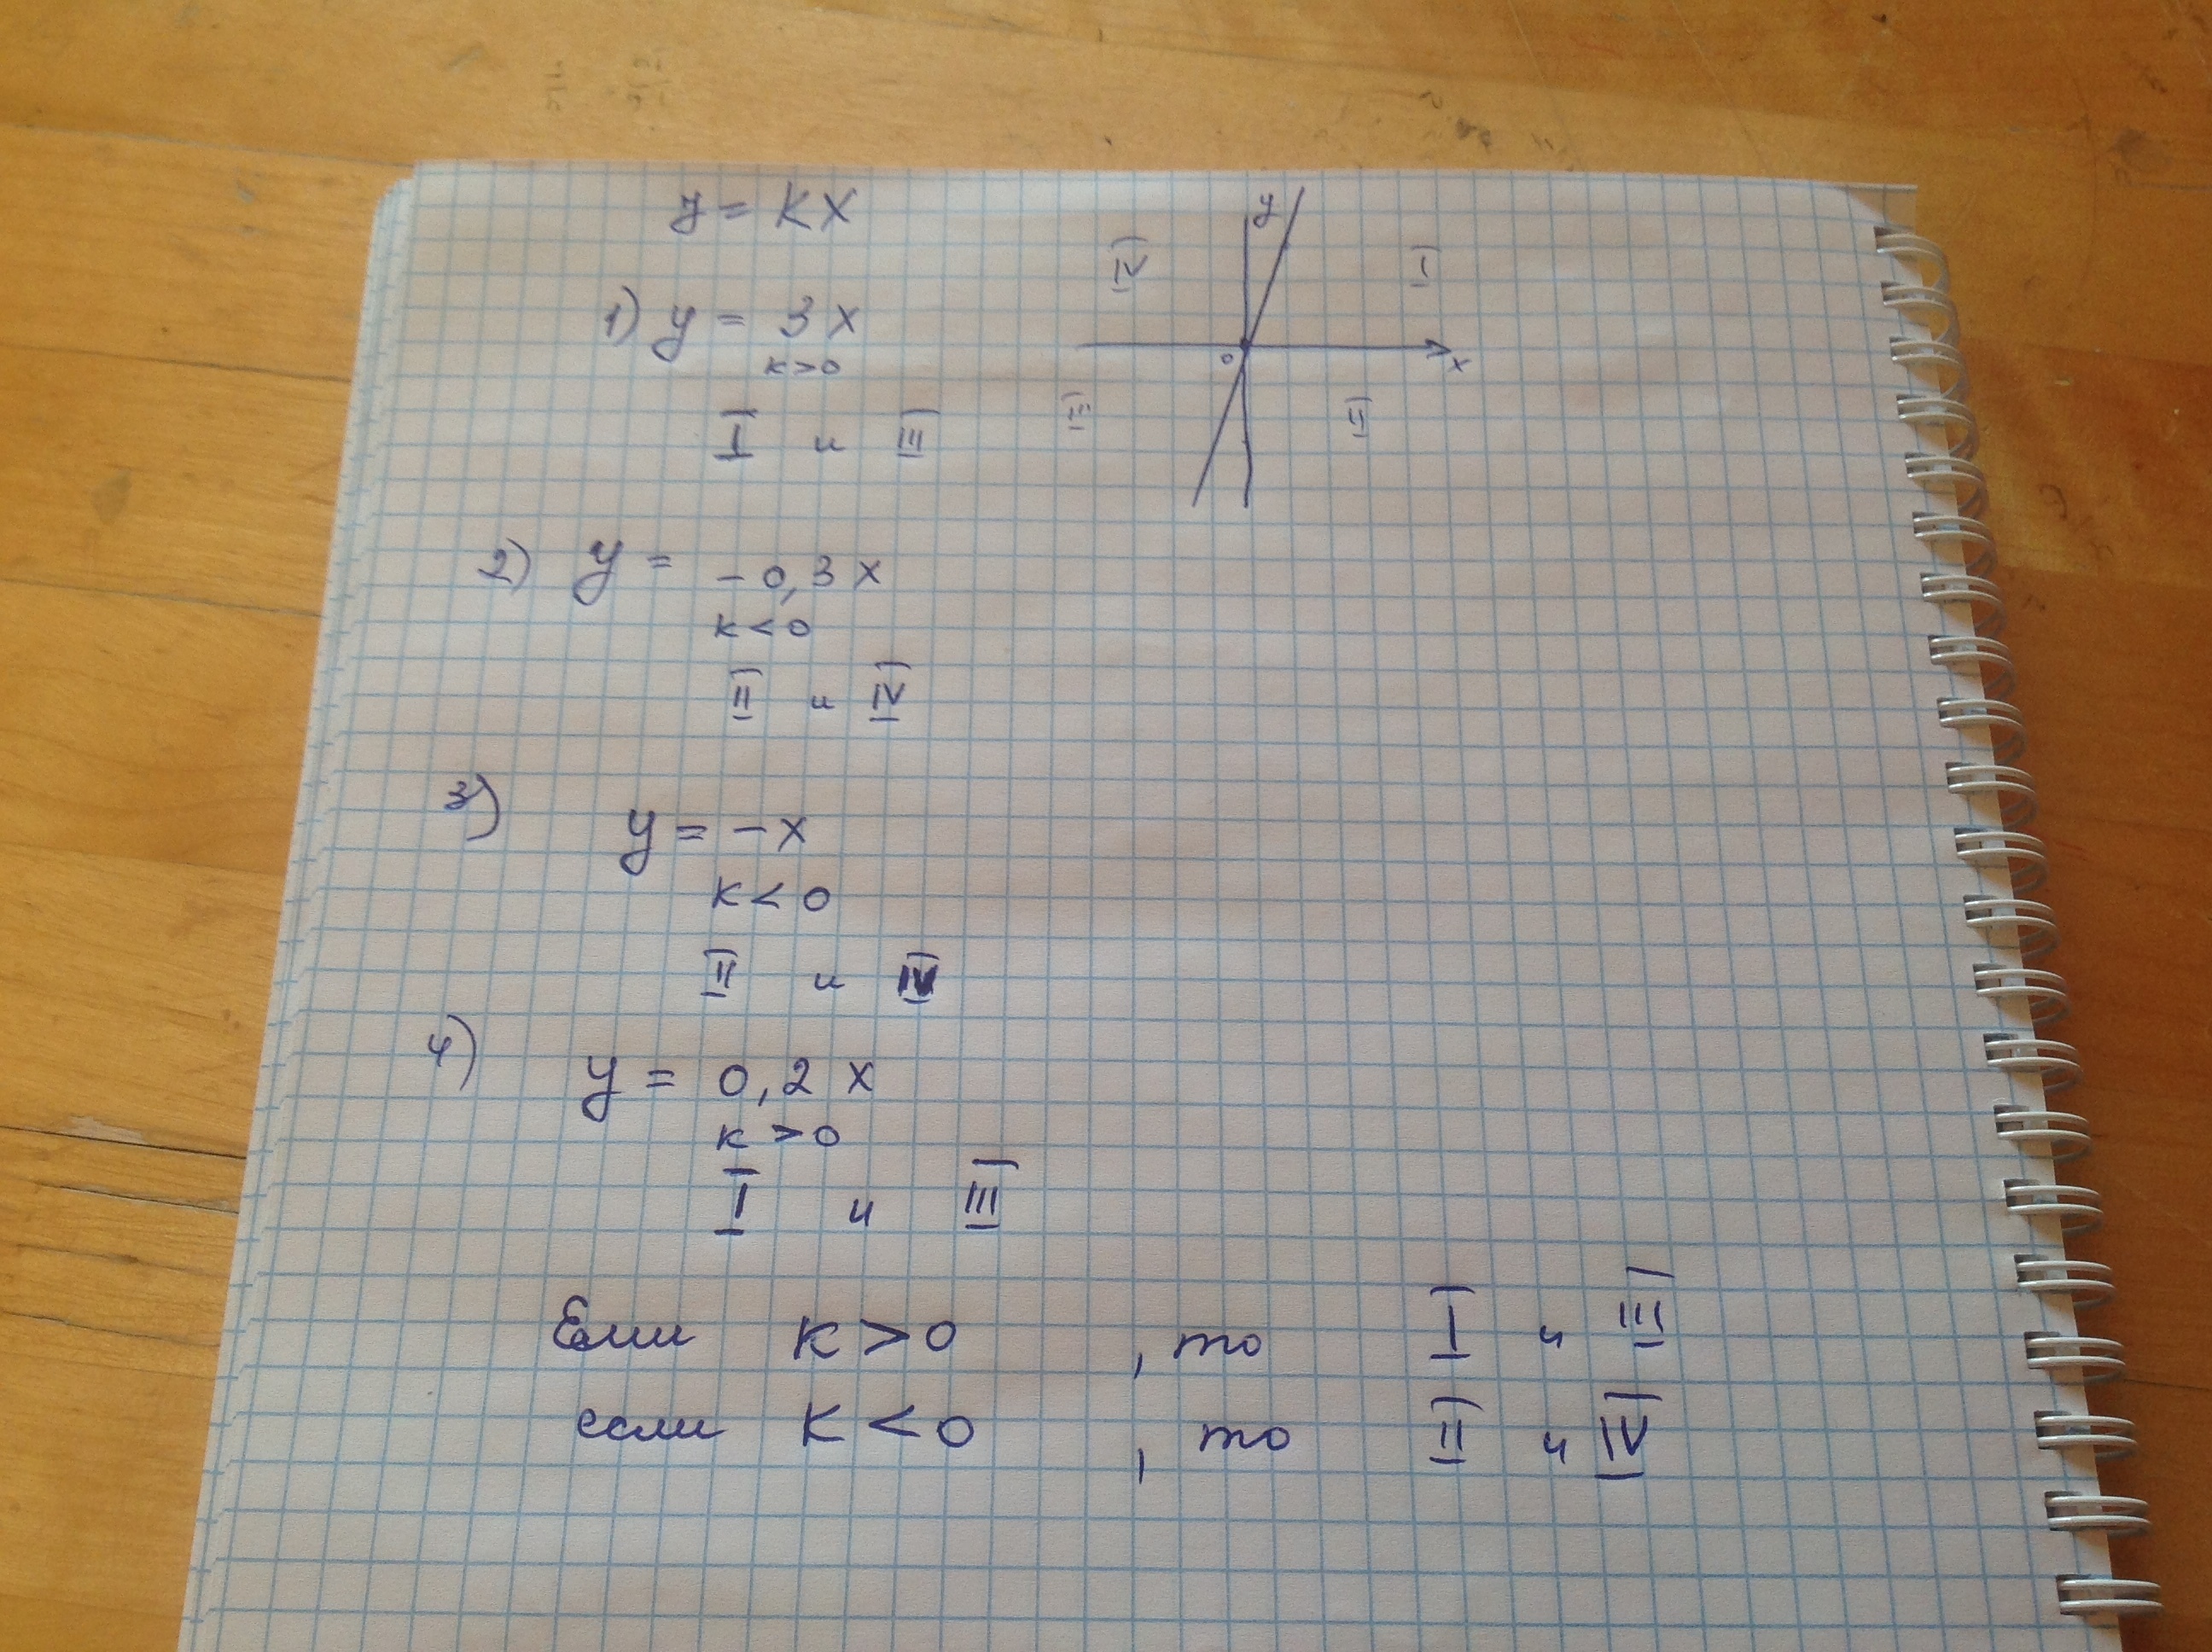 y = kx
y
IV
I
1) y = 3x
k>0
0
x
III
II
I и III
2) y = -0,3x
k<0
II и IV
3) y = -x
k<0
II и IV
4) y = 0,2x
k>0
I и III
Если k>0, то I и III
если k<0, то II и IV